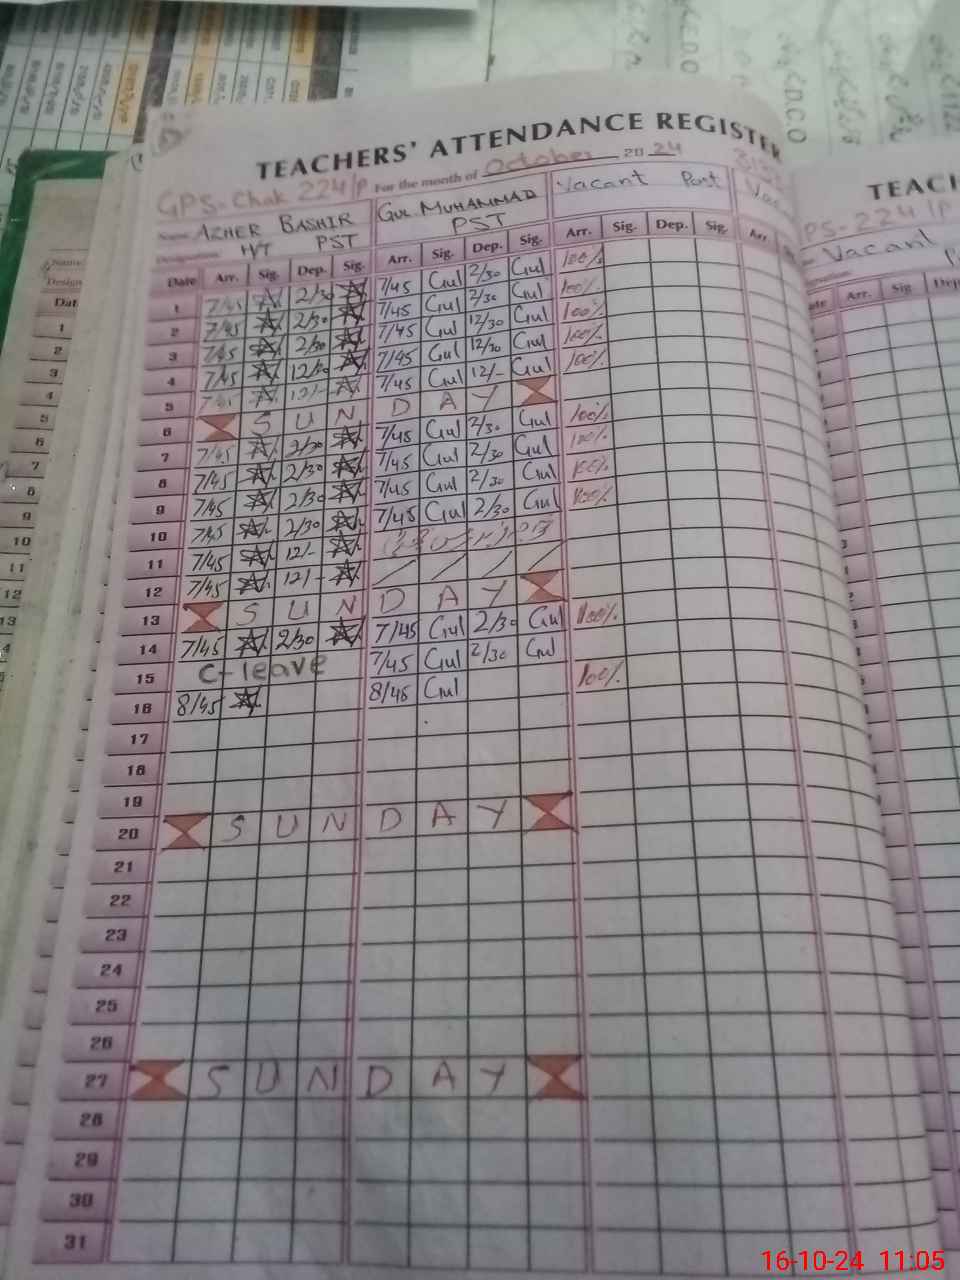 TEACHERS' ATTENDANCE REGISTER
GPS-Chak 224/P For the month of October 20 24
Name AZHER BASHIR GUL MUHAMMAD Vacant Post
Designation H/T PST PST
Date Arr. Sig. Dep. Sig. Arr. Sig. Dep. Sig. Arr. Sig. Dep. Sig. Arr.
1 7/45 2/30 7/45 Gul 2/30 Gul 100%
2 7/45 2/30 7/45 Gul 2/30 Gul 100%
3 7/45 2/30 7/45 Gul 12/30 Gul 100%
4 7/45 12/30 7/45 Gul 12/30 Gul 100%
5 7/45 12/- 7/45 Gul 12/- Gul 100%
6 SUNDAY
7 7/45 2/30 7/45 Gul 2/30 Gul 100%
8 7/45 2/30 7/45 Gul 2/30 Gul 100%
9 7/45 2/30 7/45 Gul 2/30 Gul 100%
10 7/45 2/30 7/45 Gul 2/30 Gul 100%
11 7/45 12/-
12 7/45 12/- / / / /
13 SUNDAY
14 7/45 2/30 7/45 Gul 2/30 Gul 100%
15 C-leave 7/45 Gul 2/30 Gul
16 8/45 8/45 Gul 100%
17
18
19
20 SUNDAY
21
22
23
24
25
26
27 SUNDAY
28
29
30
31
TEACH
PS-224/P
Vacant
Arr. Sig. Dep
Name:
Design
Dat
1
2
3
4
5
6
7
8
9
10
11
12
13
14
15
16-10-24 11:05